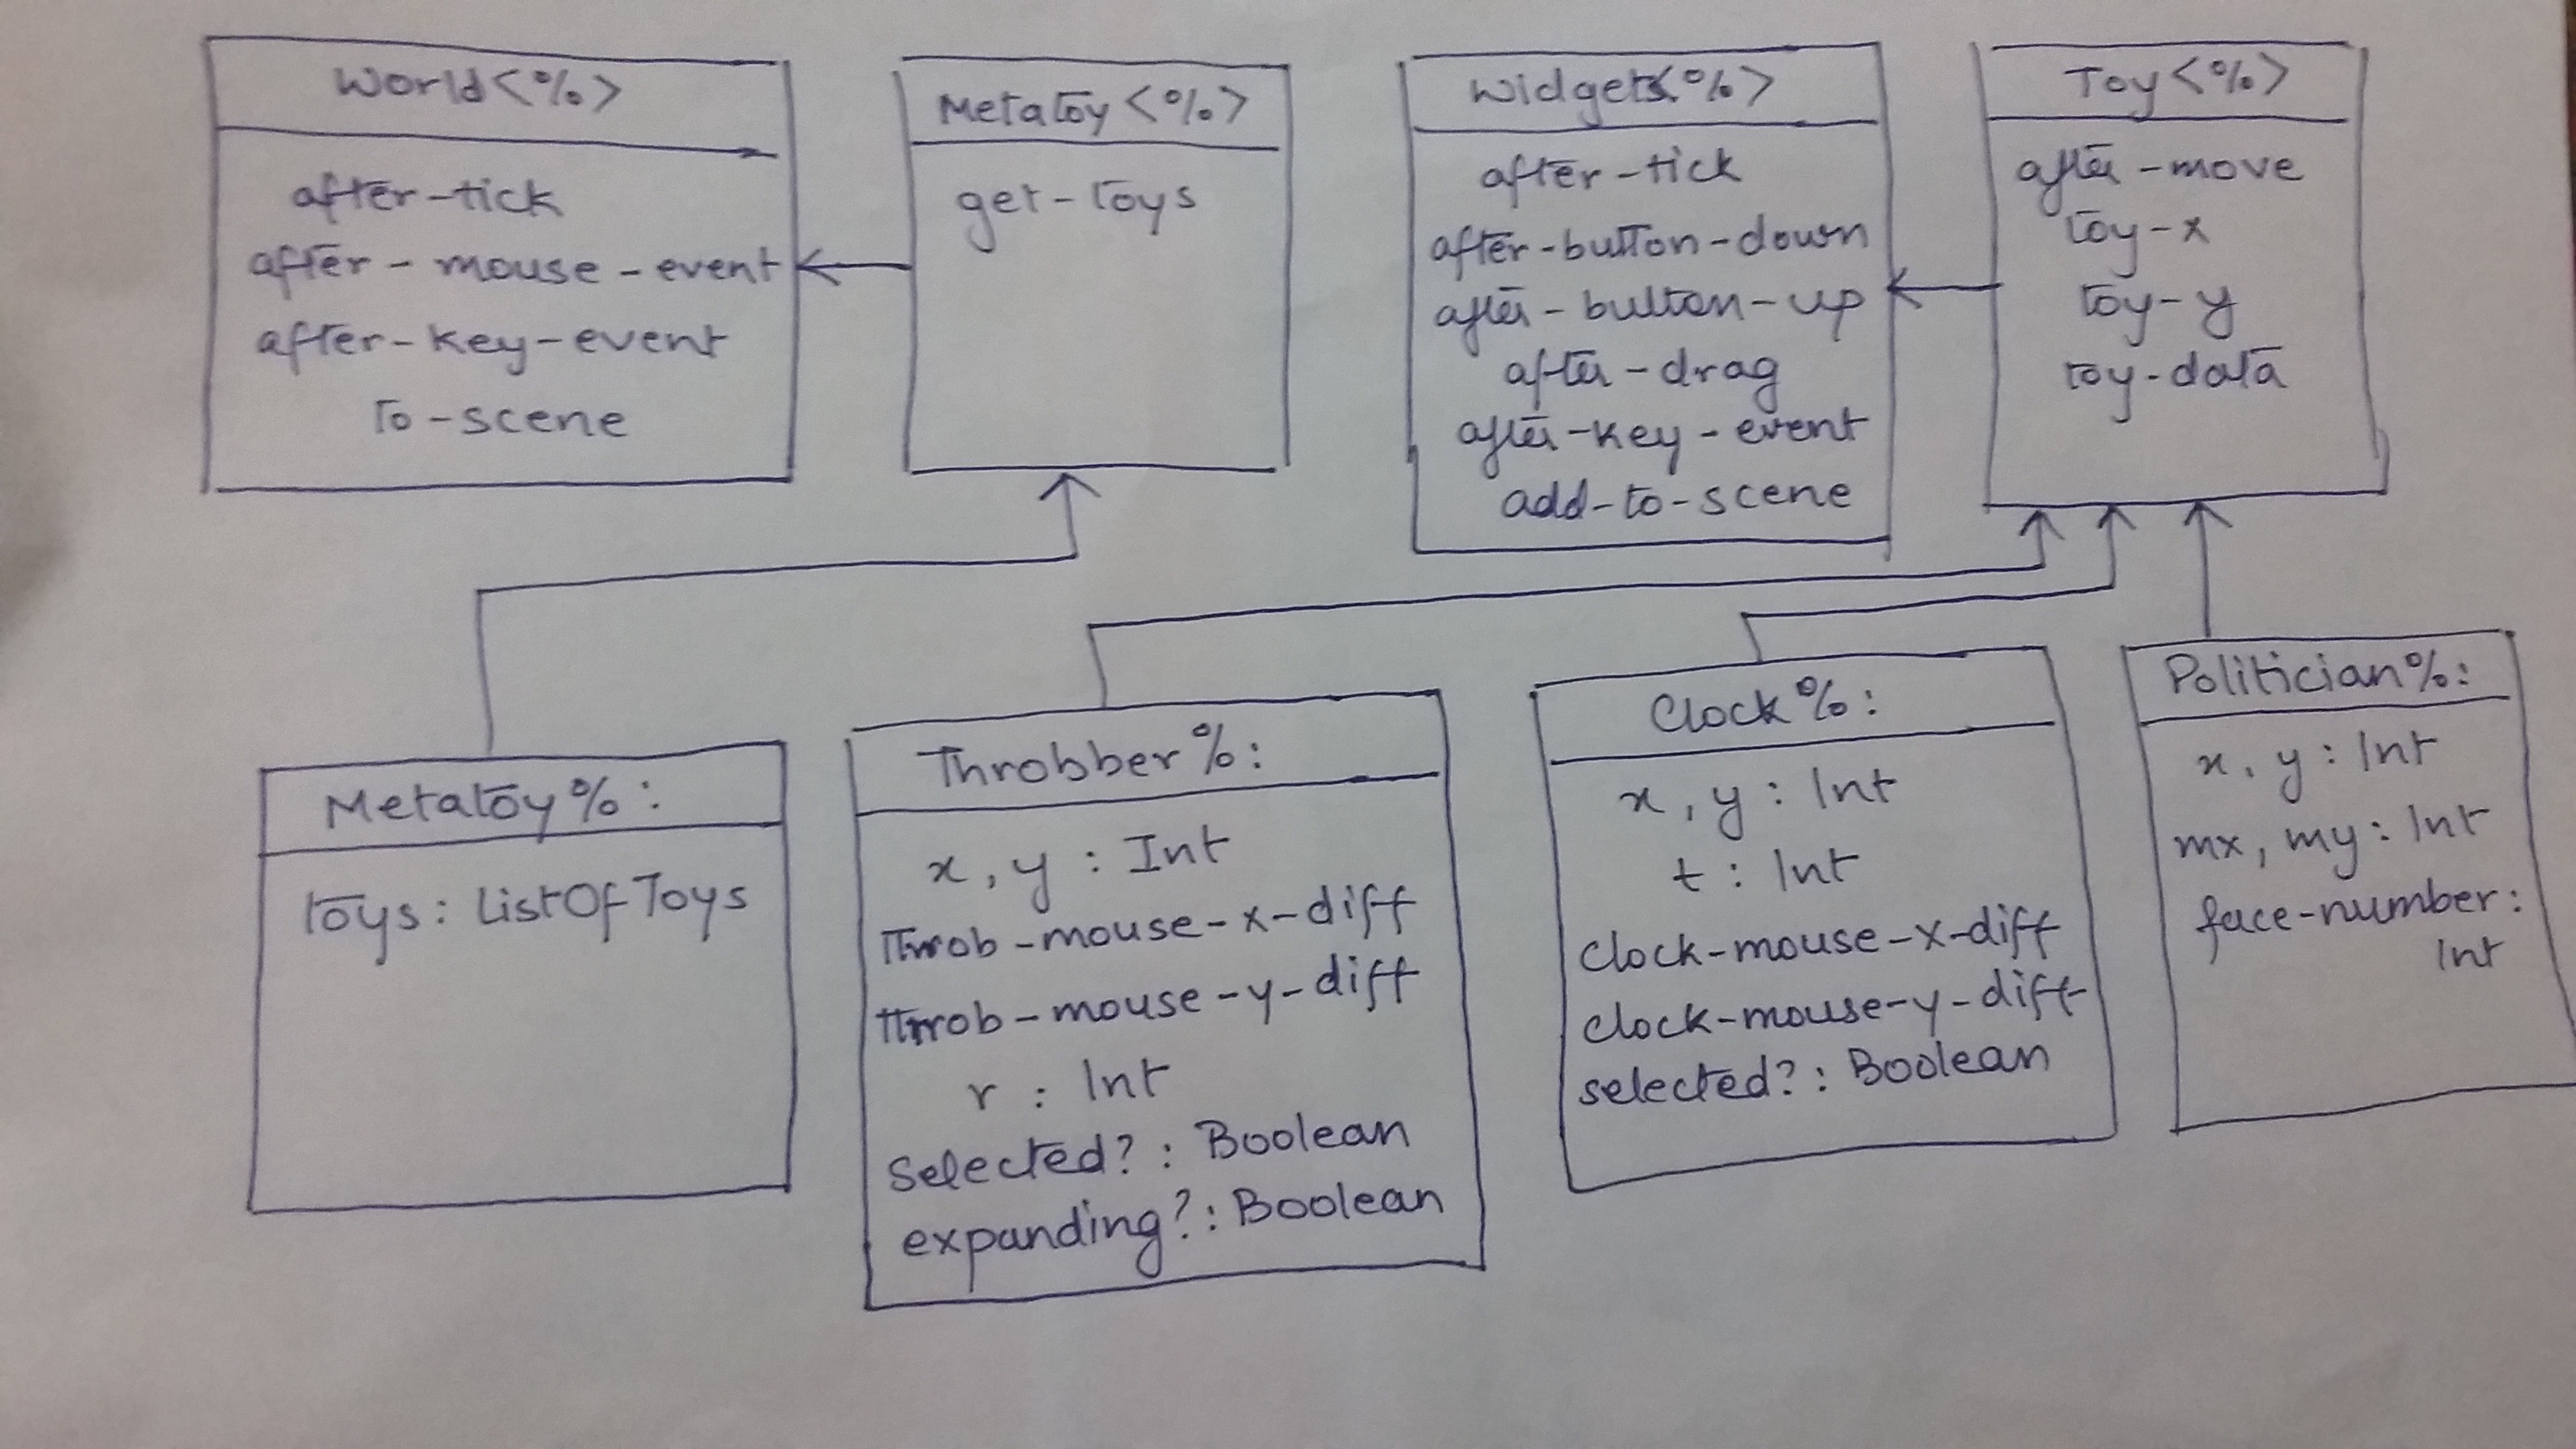 World<%>
after-tick
after-mouse-event
after-key-event
to-scene
Metatoy<%>
get-toys
Widgets<%>
after-tick
after-button-down
after-button-up
after-drag
after-key-event
add-to-scene
Toy<%>
after-move
toy-x
toy-y
toy-data
Metatoy%:
toys: ListOfToys
Throbber%:
x, y : Int
Throb-mouse-x-diff
throb-mouse-y-diff
r : Int
selected? : Boolean
expanding? : Boolean
Clock%:
x, y : Int
t : Int
clock-mouse-x-diff
clock-mouse-y-diff
selected? : Boolean
Politician%:
x, y : Int
mx, my : Int
face-number:
Int